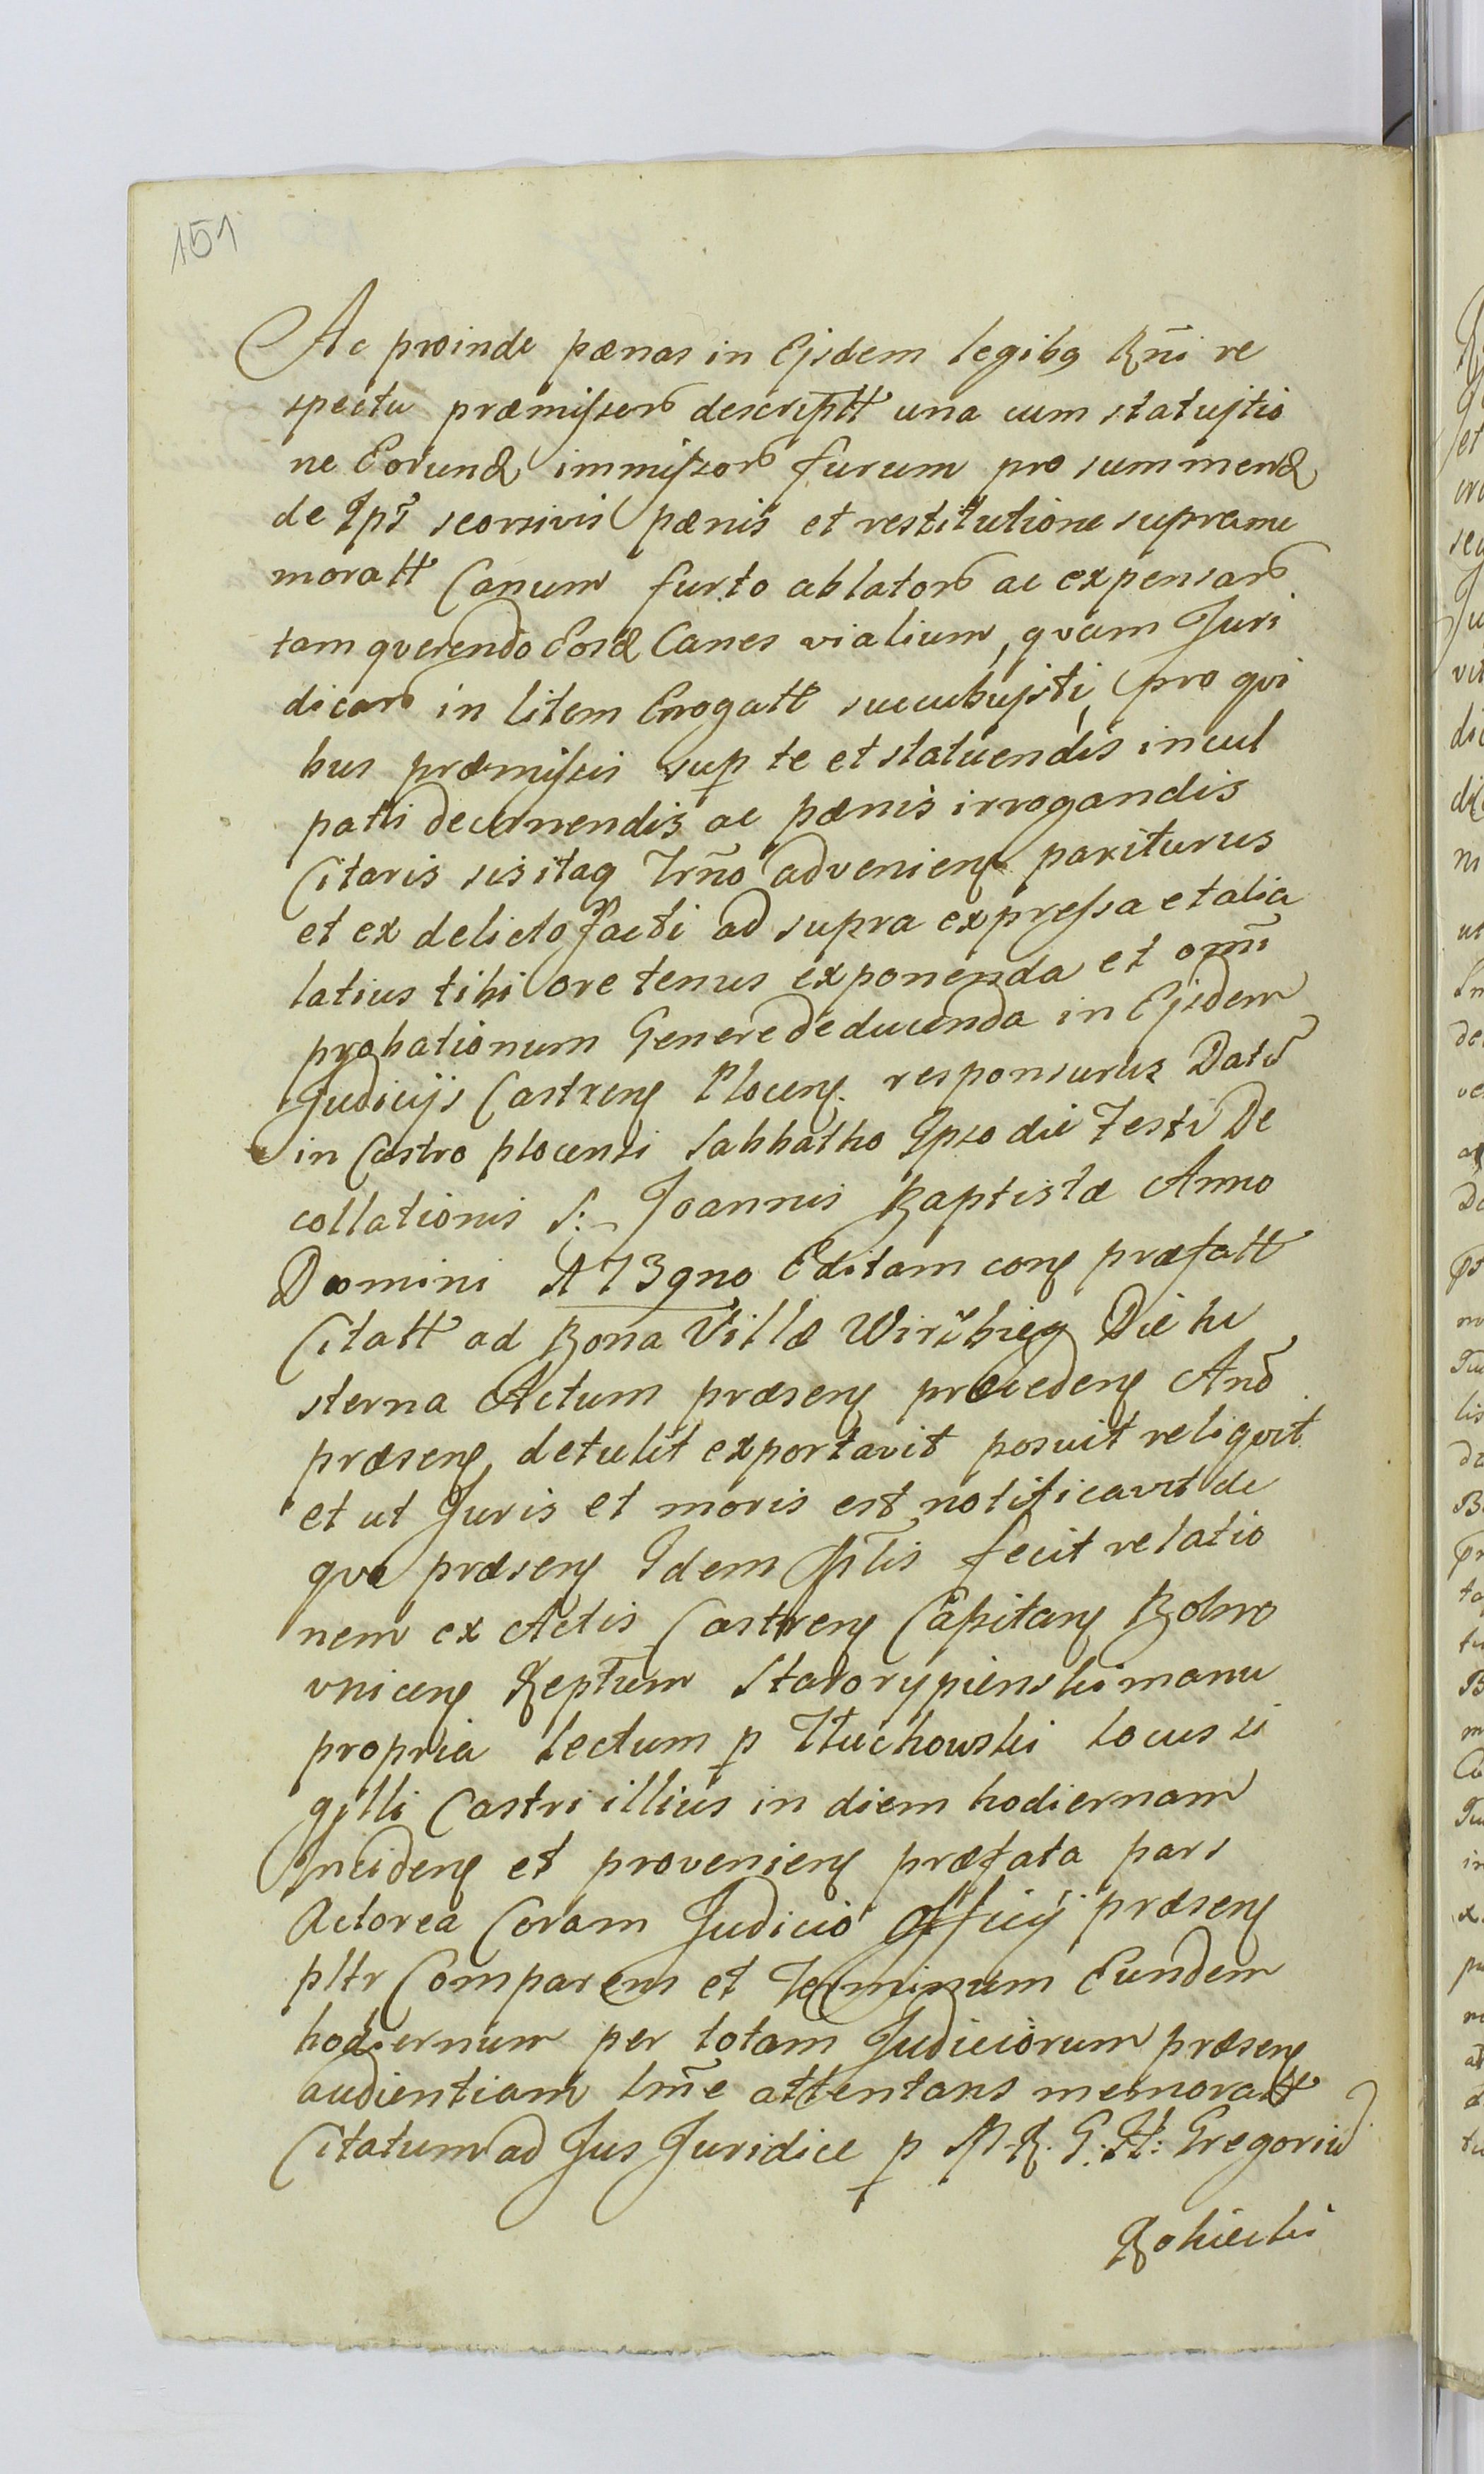 151
Ac proinde pænas in Ejsdem legibq Rñi re
spectu præmissor descriptt una cum statujtio
ne Eorund immissor furum pro summend
de Ips̃ seorsivis pænis et restitutione supreme
moratt Canum furto ablator ac expensar
tam qverendo Eosd Canes vialium, qvam Juri
dicar in litem Erogatt succubujsti, pro qvi
bus præmissis sup te et statuendis incul
patti decernendis ac pænis irrogandis
Citaris sis itaq Trño adveniens pariturus
et ex delicto facti ad supra expressa et alia
latius tibi ore tenus exponenda et om̃i
probationum Genere deducenda in Ejsdem
Judicijs Castrens Plocens. responsurus Datũ
in Castro plocensi Sabbatho Ipso die Festi De
collationis S: Joannis Baptistæ Anno
Domini 1739no Editam cons præfatt
Citatt ad Bona Villæ Die he
sterna Actum præsens præcedens Añd
præsens detulit exportavit posuit reliqvit
et ut Juris et moris est notificavit de
qvo præsens Idem fecit relatio
nem ex Actis Castrens Capitans Bobro
vnicens Reptum Starorypienski manu
propria lectum p Tłuchowski locus si
gilli Castri illius in diem hodiernam
Incidens et proveniens præfata pars
Actorea Coram Judicio Officij præsens
pltr Comparens et Terminum Eundem
hodiernum per totam Judiciorum præsens
audientiam lm̃e attentans memoratt
Citatum ad Jus Juridice p M. R. G. H: Gregoriũ